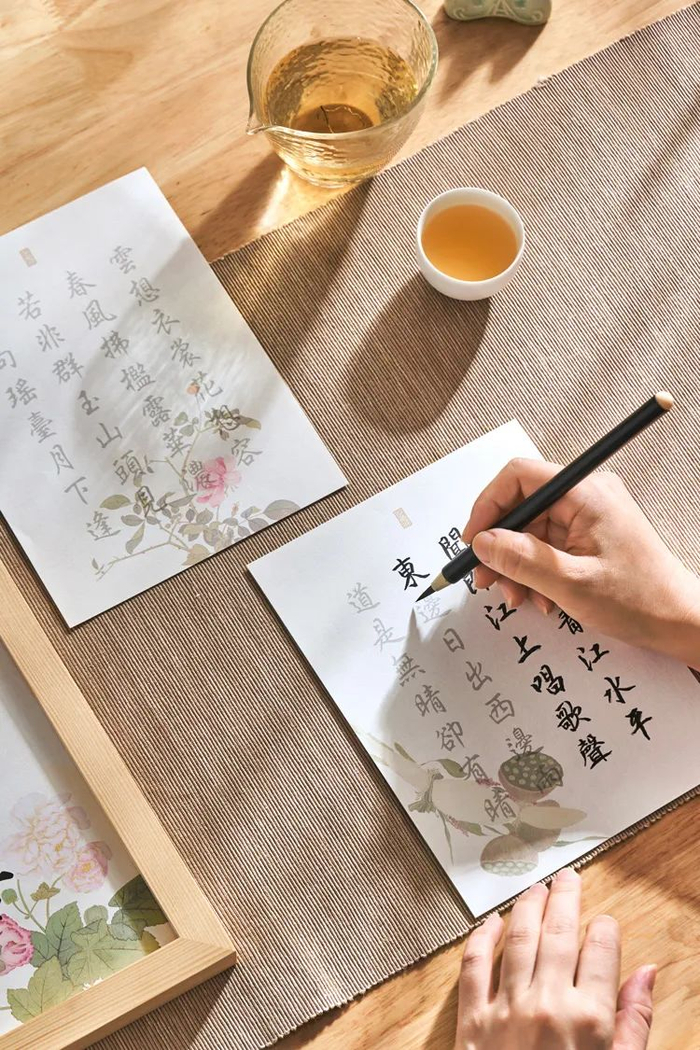 雲想衣裳花想容
春風拂檻露華濃
若非群玉山頭見
向瑤臺月下逢
青江水平
聞江上唱歌聲
東邊日出西邊雨
道是無晴卻有晴